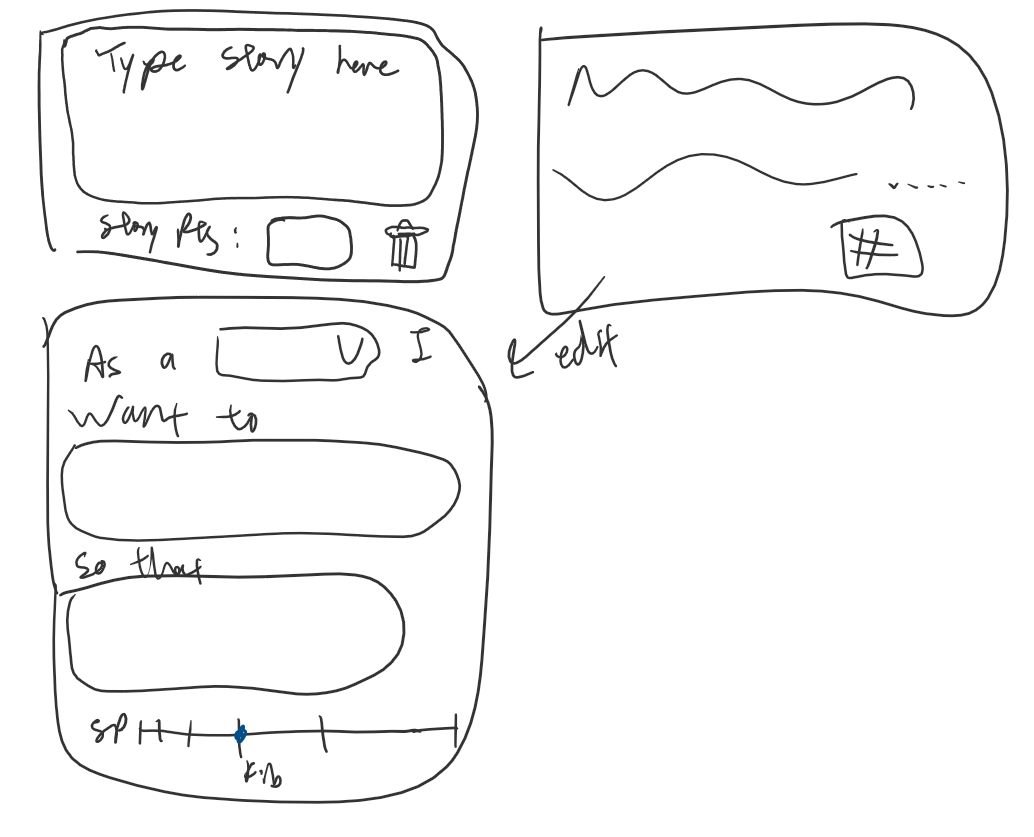 Type story here
Story Pts:
#
As a V I
want to
edit
so that
SP
Fib